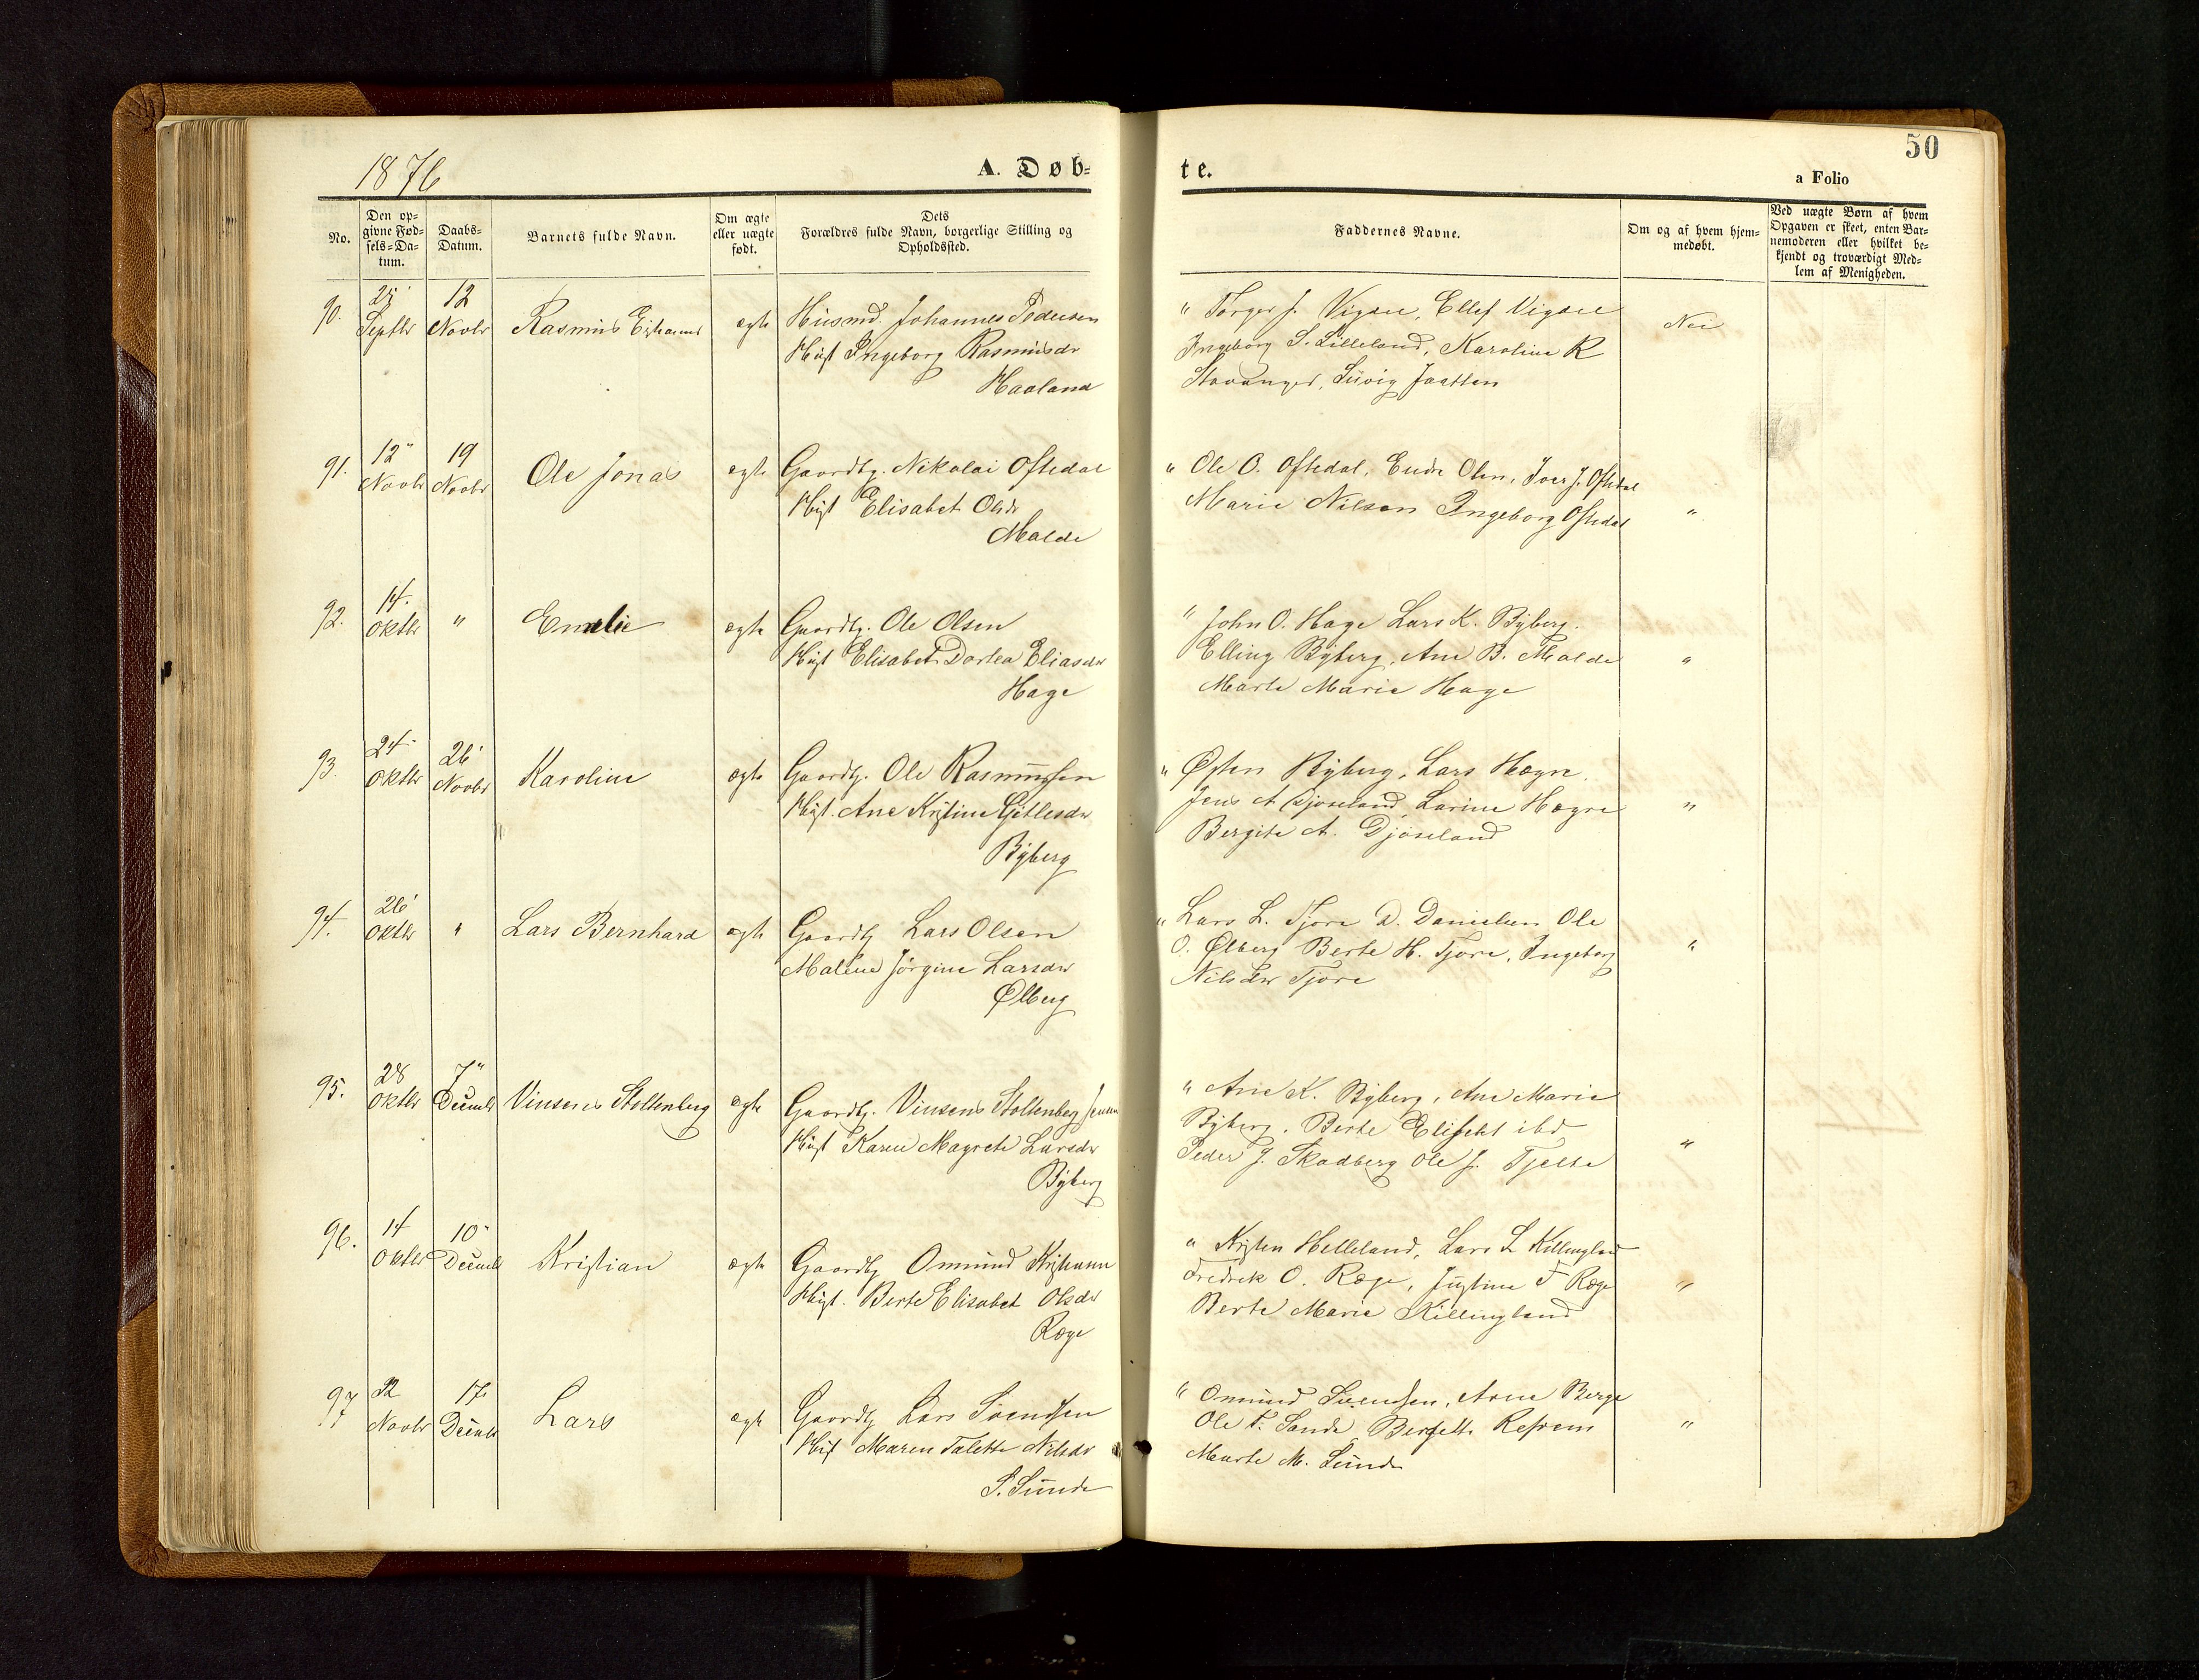 1876
A. Døb-
te.
50
a Folio
No.
Den op-
givne Fød-
sels-Da-
tum.
Daabs-
Datum.
Barnets fulde Navn.
Om ægte
eller uægte
født.
Dets
Forældres fulde Navn, borgerlige Stilling og
Opholdssted.
Faddernes Navne.
Om og af hvem hjem-
medøbt.
Ved uægte Børn af hvem
Opgaven er skeet, enten Bar-
nemoderen eller hvilket be-
kjendt og troværdigt Med-
lem af Menigheden.
90.
Septbr
12
Novbr
Rasmus
ægte
Husmd. Johannes Pedersen
Hust Ingeborg Rasmusdr
Haaland
" Torger J. Vigdel, Ellef Vigdel
Ingeborg S. Lilleland, Karoline R
Stavanger, Jaatten
Nei
91.
12"
Novbr
19
Novbr
Ole Jonas
ægte
Gaardbr. Nikolai Oftedal
Hust Elisabet Olsdr
Malde
" Ole O. Oftedal, Endre Olsen, Iver J. Oftedal
Marie Nilsen Ingeborg Oftedal
"
92.
14.
Oktbr
"
Emelie
ægte
Gaardbr. Ole Olsen
Hust Elisabet Dortea Eliasdr
Hage
" John O. Hage Lars K. Byberg.
Elling Byberg, Ane B. Malde
Marte Marie Hage
"
93.
24
Oktbr
26
Novbr
Karoline
ægte
Gaardbr. Ole Rasmussen
Hust. Ane Kristine Gitlesdr
Byberg
" Østen Byberg, Lars Hægre.
Jens A Djøseland, Larine Hægre
Bergite A. Djøseland
"
94.
26
Oktbr
"
Lars Bernhard
ægte
Gaardbr Lars Olsen
Malene Jørgine Larsdr
Ølberg
" Lars L. Tjora D. Danielsen Ole
O. Ølberg Berte H. Tjora, Ingeborg
Nilsdr Tjora
"
95.
28
Oktbr
7"
Decmbr
Vinsens Stoltenberg
ægte
Gaardbr. Vinsens Stoltenberg Jensen
Hust Karen Magrete Larsdr
Byberg
" Arne K. Byberg, Ane Marie
Byberg, Berte Elisabet ibd
Peder J. Skadberg Ole J. Tjelta
"
96.
14
Oktbr
10"
Decmbr
Kristian
ægte
Gaardbr Ommund Kristiansen
Hust. Berte Elisabet Olsdr
Ræge
" Kristen Helleland, Lars L Killingland
Fredrik O. Ræge, Justine F Ræge
Berte Marie Killingland
"
97
Novbr
17
Decmbr
Lars
ægte
Gaardbr Lars Svendsen
Hust Maren Talette Nilsdr
S. Sunde
" Ommund Svendsen, Arne Berge
Ole T. Sande Refsnes
Marte M. Sunde
"